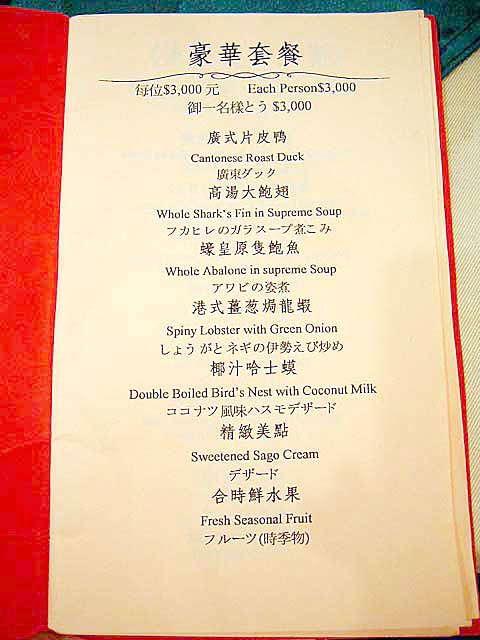 豪華套餐
每位$3,000 元 Each Person$3,000
御一名様とう $3,000
廣式片皮鴨
Cantonese Roast Duck
廣東ダック
高湯大鮑翅
Whole Shark's Fin in Supreme Soup
フカヒレのガラスープ煮こみ
蠔皇原隻鮑魚
Whole Abalone in supreme Soup
アワビの姿煮
港式薑葱焗龍蝦
Spiny Lobster with Green Onion
しょうがとネギの伊勢えび炒め
椰汁哈士蟆
Double Boiled Bird's Nest with Coconut Milk
ココナツ風味ハスモデザード
精緻美點
Sweetened Sago Cream
デザード
合時鮮水果
Fresh Seasonal Fruit
フルーツ(時季物)